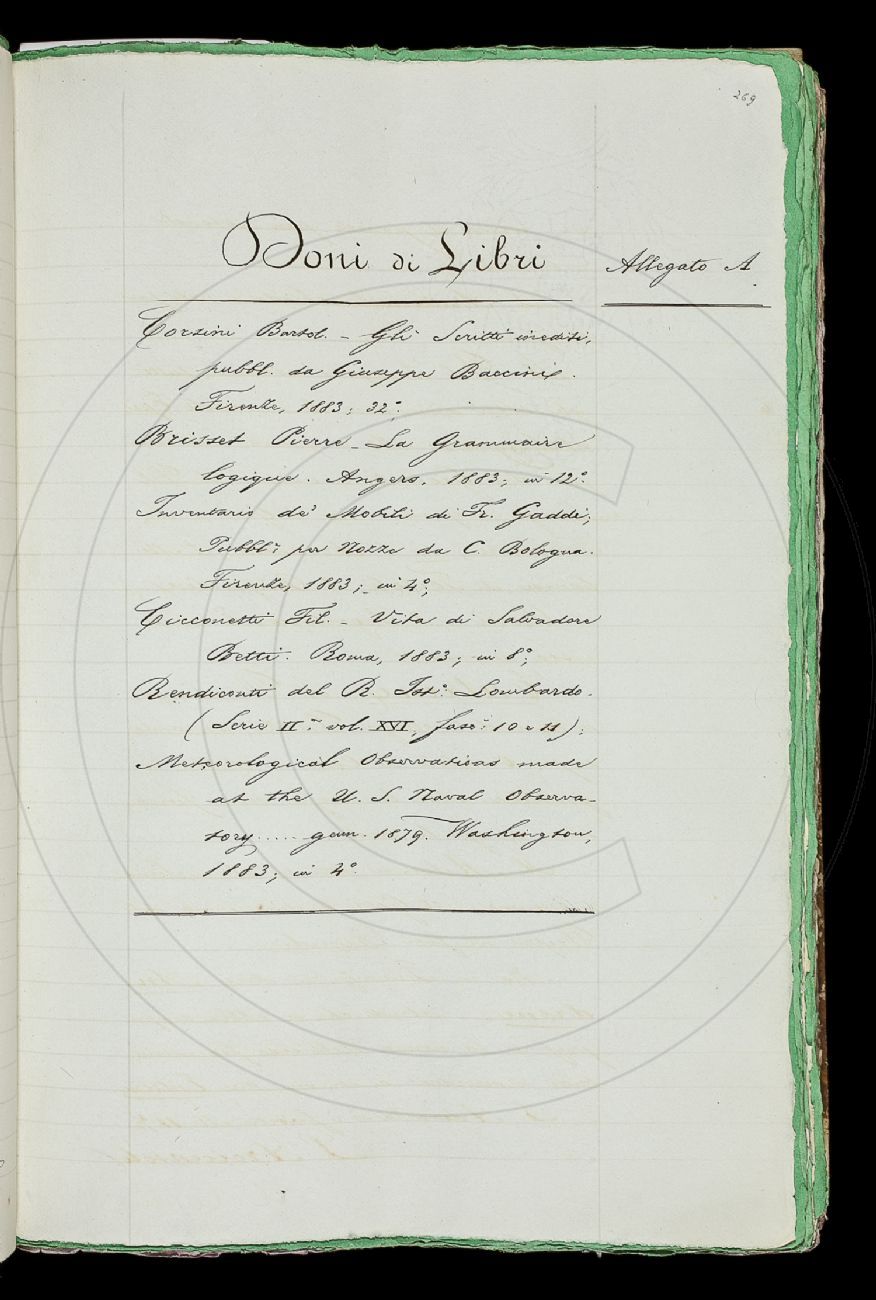 269
Doni di Libri
Allegato A
Corsini Bartol. - Gli Scritti inediti,
pubbl. da Giuseppe Baccini.
Firenze, 1883; 32°.
Brisset Pierre - La Grammaire
logique. Angers, 1883; in 12°.
Inventario de' Mobili di Fr. Gaddi,
Pubbl. per Nozze da C. Bologna.
Firenze, 1883; - in 4°;
Cicconetti Fil. - Vita di Salvadore
Betti. Roma, 1883; in 8°;
Rendiconti del R. Ist°. Lombardo.
(Serie II.ª vol. XVI, fasc.i 10 e 11);
Meteorological Observations made
at the U. S. Naval Observa-
tory..... 1879. Washington,
1883; in 4°.